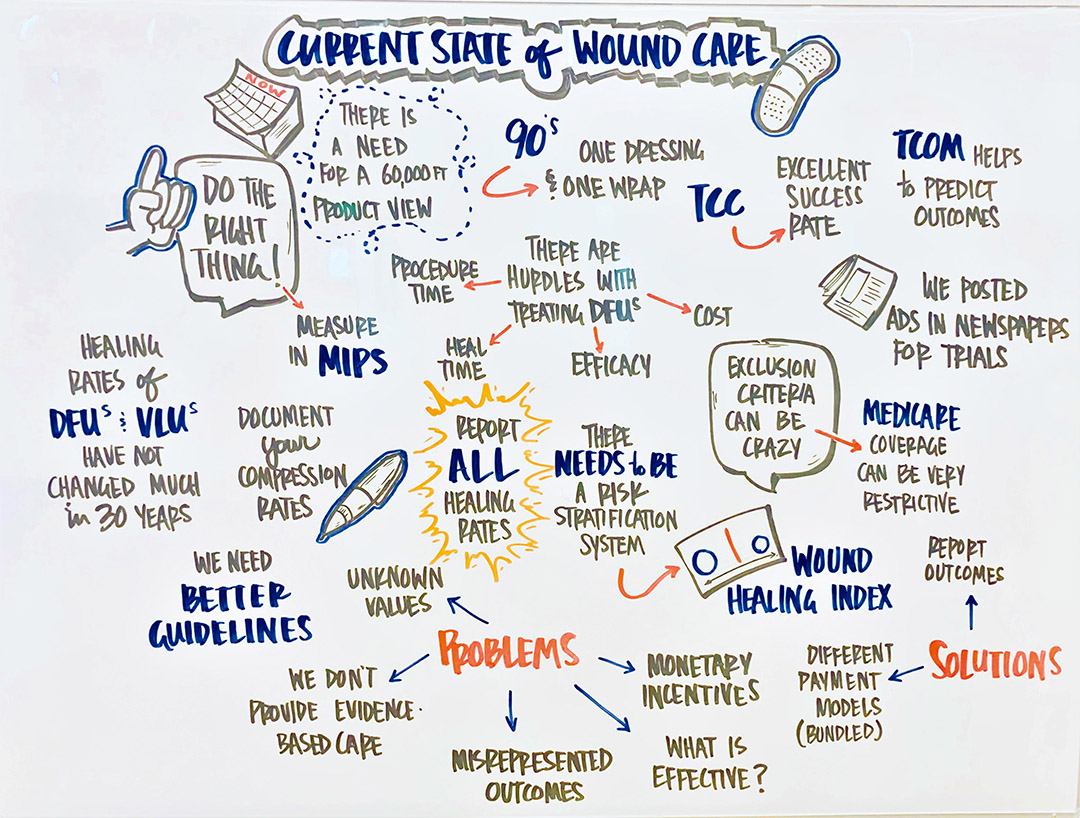 CURRENT STATE of WOUND CARE
NOW
DO THE
RIGHT
THING!
MEASURE
IN MIPS
THERE IS
A NEED
FOR A 60,000 FT
PRODUCT VIEW
90's
ONE DRESSING
& ONE WRAP
TCC
EXCELLENT
SUCCESS
RATE
TCOM HELPS
to PREDICT
OUTCOMES
THERE ARE
HURDLES WITH
TREATING DFUs
PROCEDURE
TIME
HEAL
TIME
EFFICACY
COST
WE POSTED
ADS IN NEWSPAPERS
FOR TRIALS
HEALING
RATES of
DFUs & VLUs
HAVE NOT
CHANGED MUCH
in 30 YEARS
DOCUMENT
your
COMPRESSION
RATES
REPORT
ALL
HEALING
RATES
THERE
NEEDS to BE
A RISK
STRATIFICATION
SYSTEM
WOUND
HEALING INDEX
EXCLUSION
CRITERIA
CAN BE
CRAZY
MEDICARE
COVERAGE
CAN BE VERY
RESTRICTIVE
WE NEED
BETTER
GUIDELINES
PROBLEMS
UNKNOWN
VALUES
WE DON'T
PROVIDE EVIDENCE-
BASED CARE
MISREPRESENTED
OUTCOMES
WHAT IS
EFFECTIVE?
MONETARY
INCENTIVES
SOLUTIONS
REPORT
OUTCOMES
DIFFERENT
PAYMENT
MODELS
(BUNDLED)